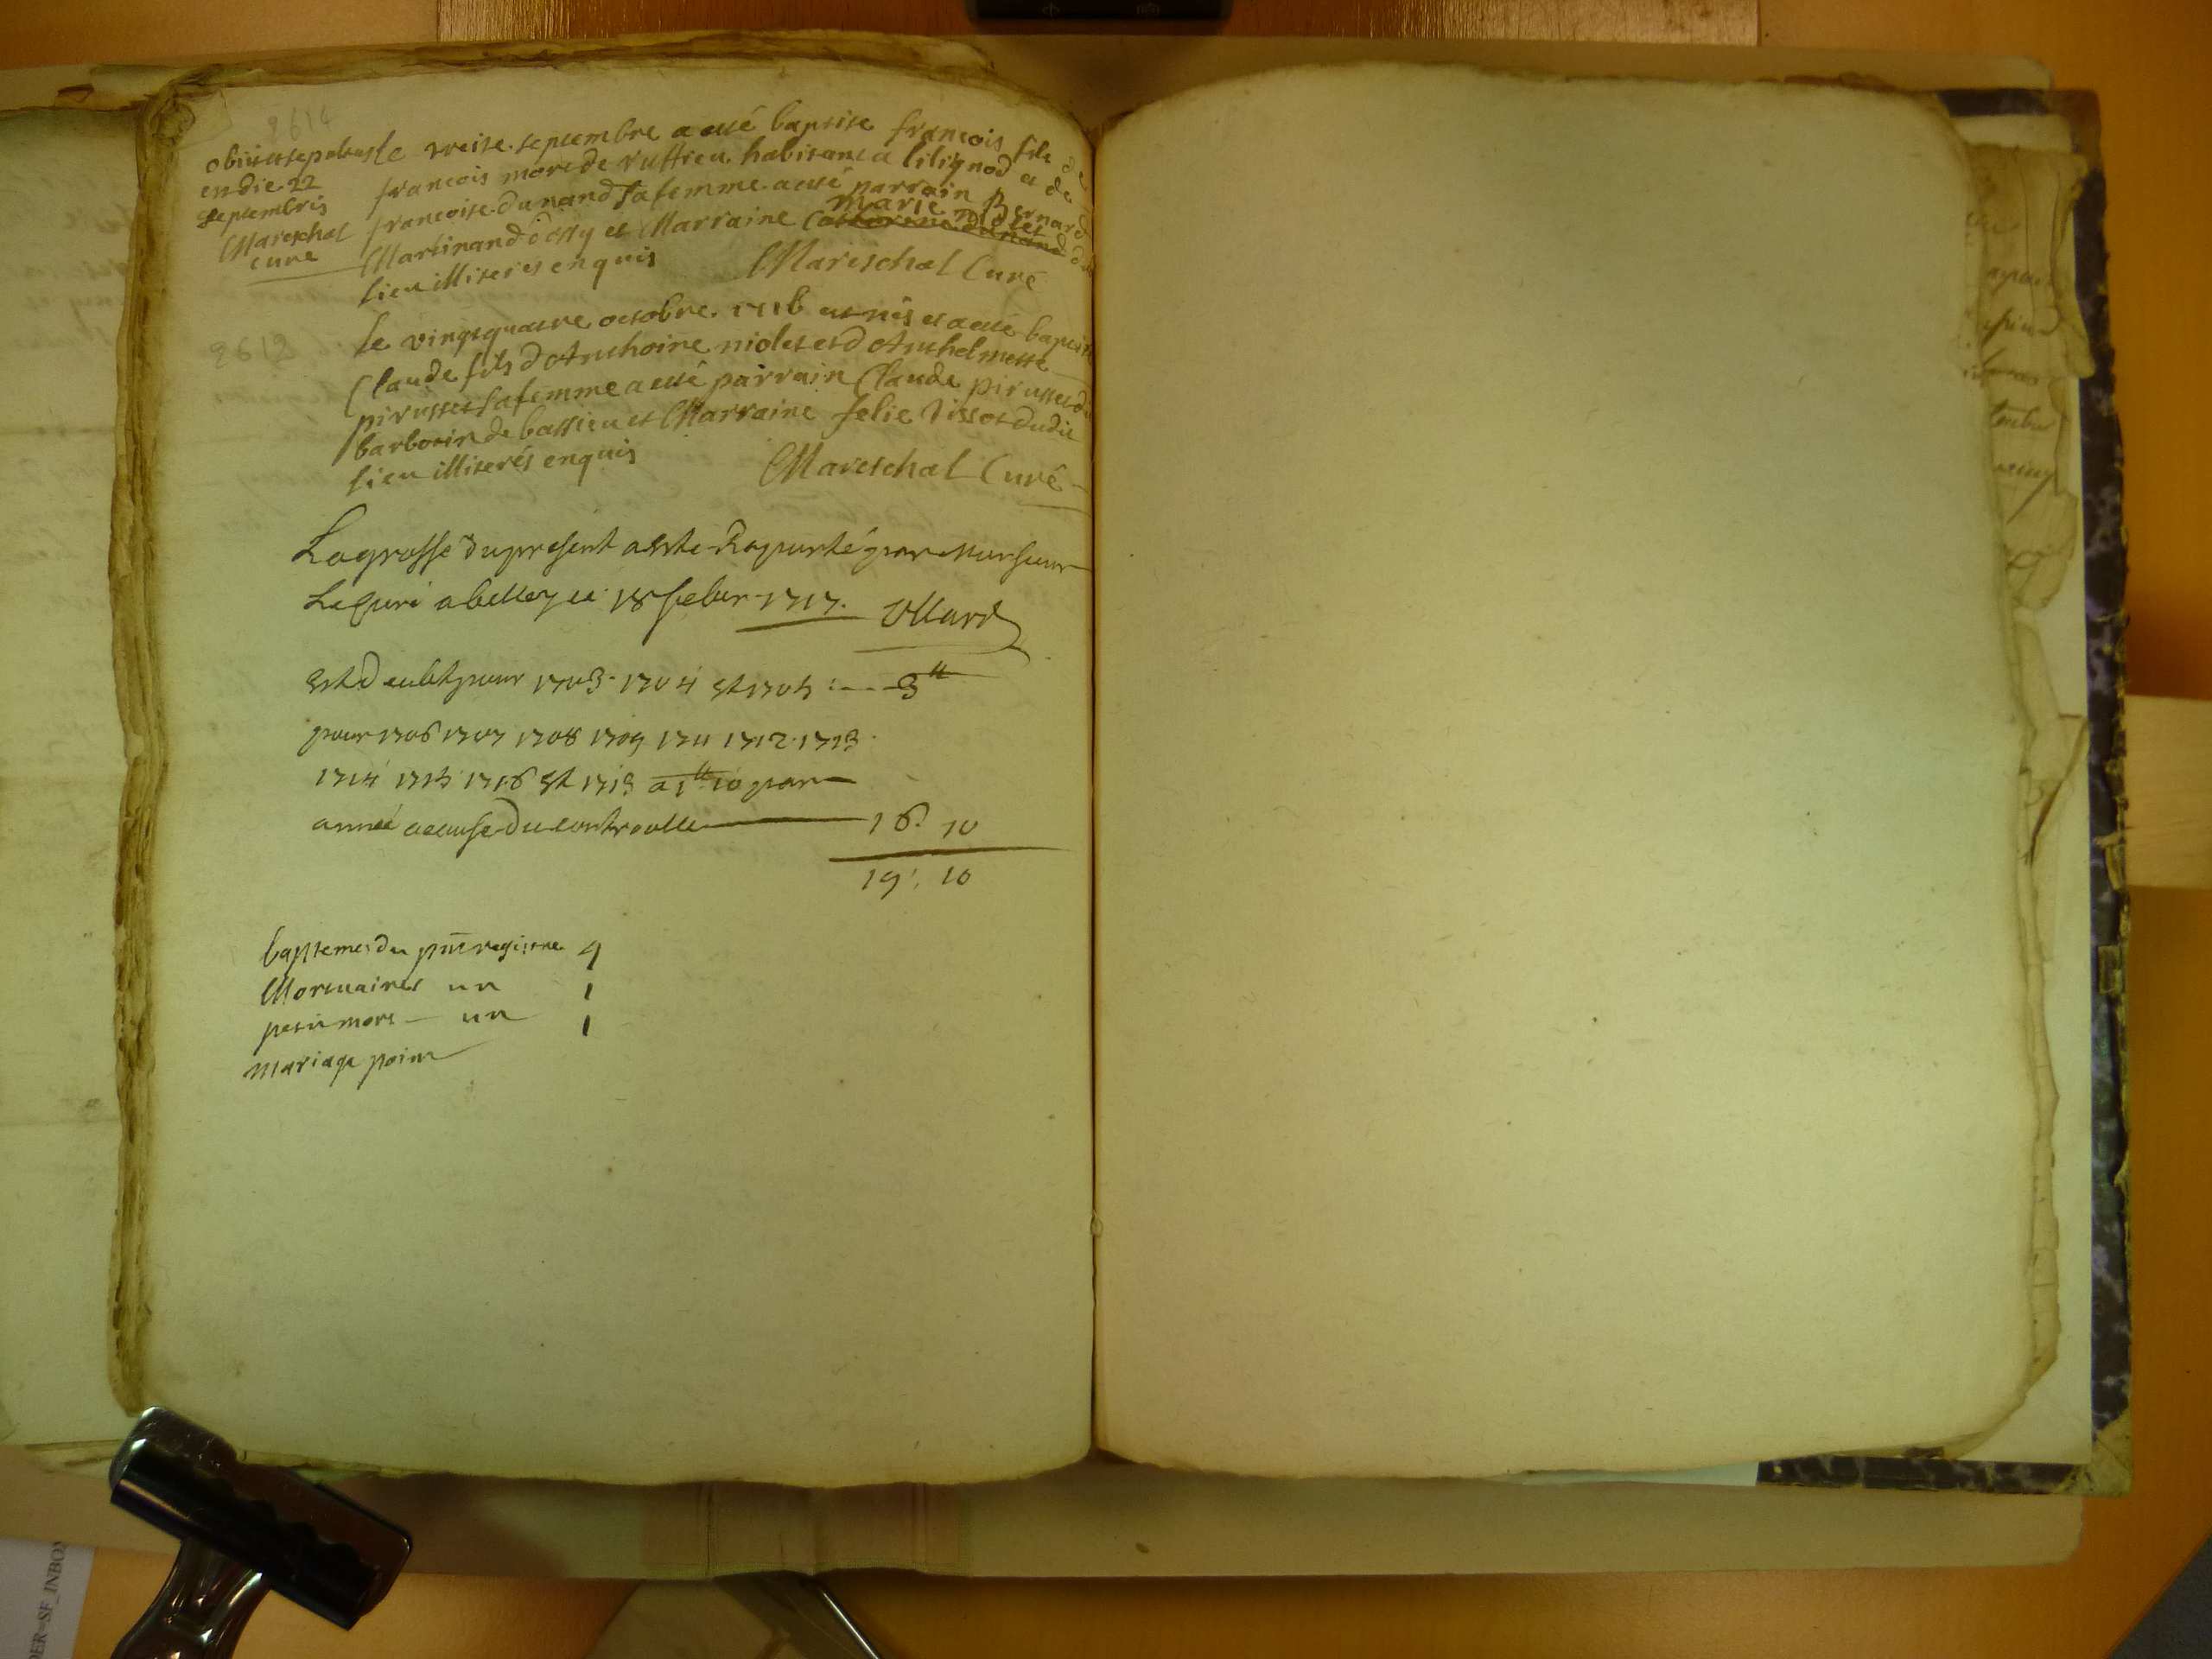 2614
obiit et sepultus
en die 22
septembris
Mareschal
cure
le treise septembre a esté baptise francois fils de
francois more de ruffieu habitant a lilignod et de
francoise dunand sa femme a esté parrain Bernard
marie niolet
Martinand dossy et Marraine Catherine dunand du
lieu illiteres enquis Mareschal Curé
2612
le vingtquatre octobre 1716 est nés et a esté baptise
Claude fils d'Anthoine niolet et d'Anthelmette
pirusset sa femme a esté parrain Claude pirusset du
barbotin de bassieu et Marraine felie Tissot dudit
lieu illiterés enquis Mareschal Curé
La grosse du present a este Raporté par Monsieur
Le Curé a belley ce 18 febvr 1717. Ullard
Est deubt pour 1703 1704 et 1705 : 3 ll
pour 1706 1707 1708 1709 1711 1712 1713
1714 1715 1716 et 1713 a 1 ll 10 par
année a cause du controulle 16 10
19 10
baptemes du pnt registre 9
Mortuaires un 1
petit mort un 1
mariage point